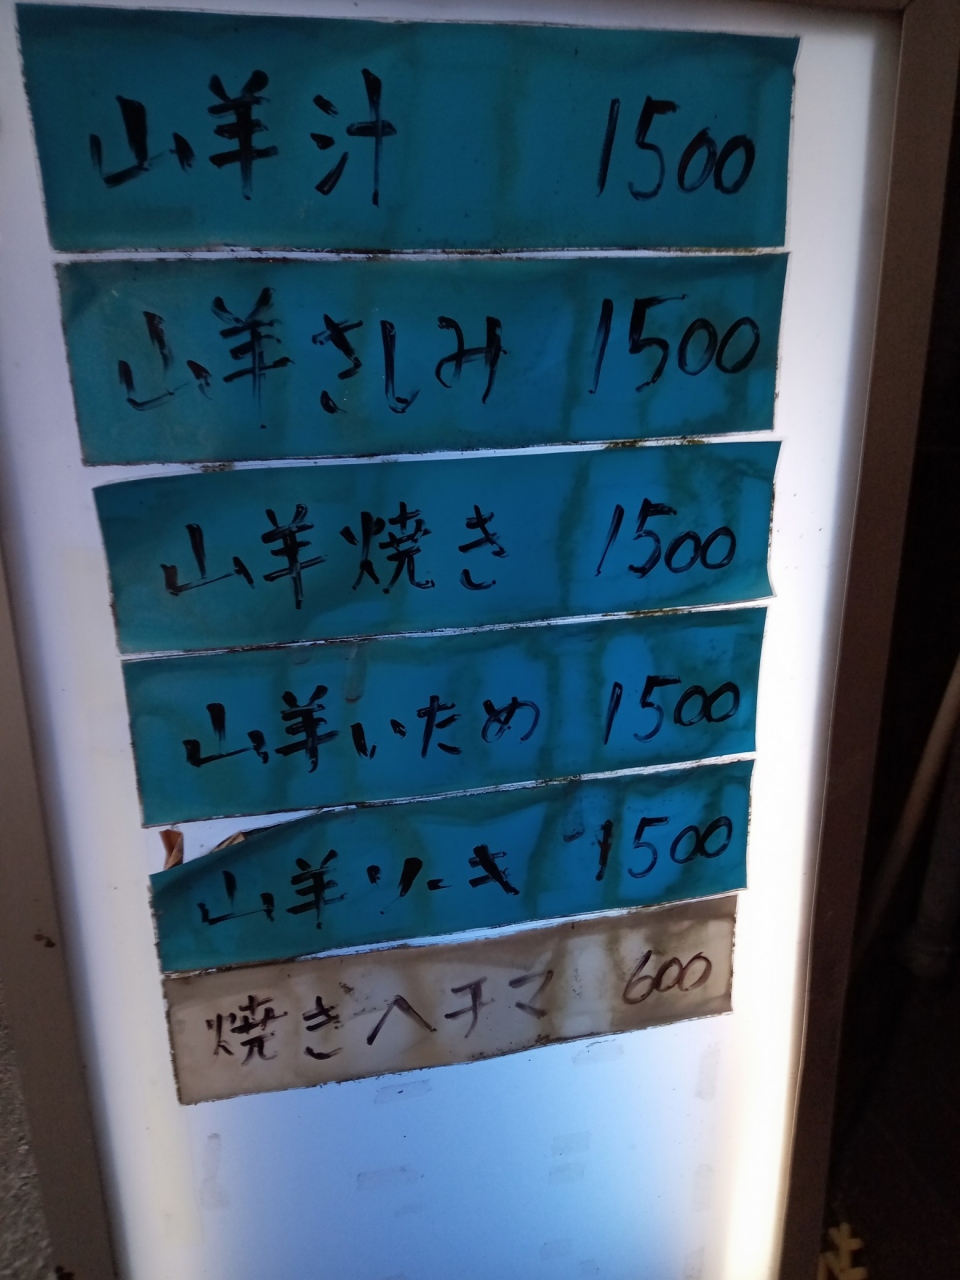 山羊汁 1500
山羊さしみ 1500
山羊焼き 1500
山羊いため 1500
山羊ソーキ 1500
焼きヘチマ 600